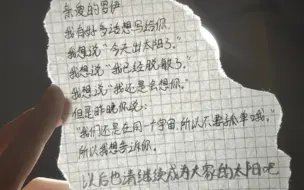 亲爱的罗伊
我有好多话想写给你
我想说“今天出太阳了。”
我想说“我已经脱敏了。”
我想说“我还是会想你。”
但是昨晚你说:
“我们还是在同一个宇宙,所以不要辜率哦。”
所以我想告诉你,
以后也请继续成为大家的太阳吧